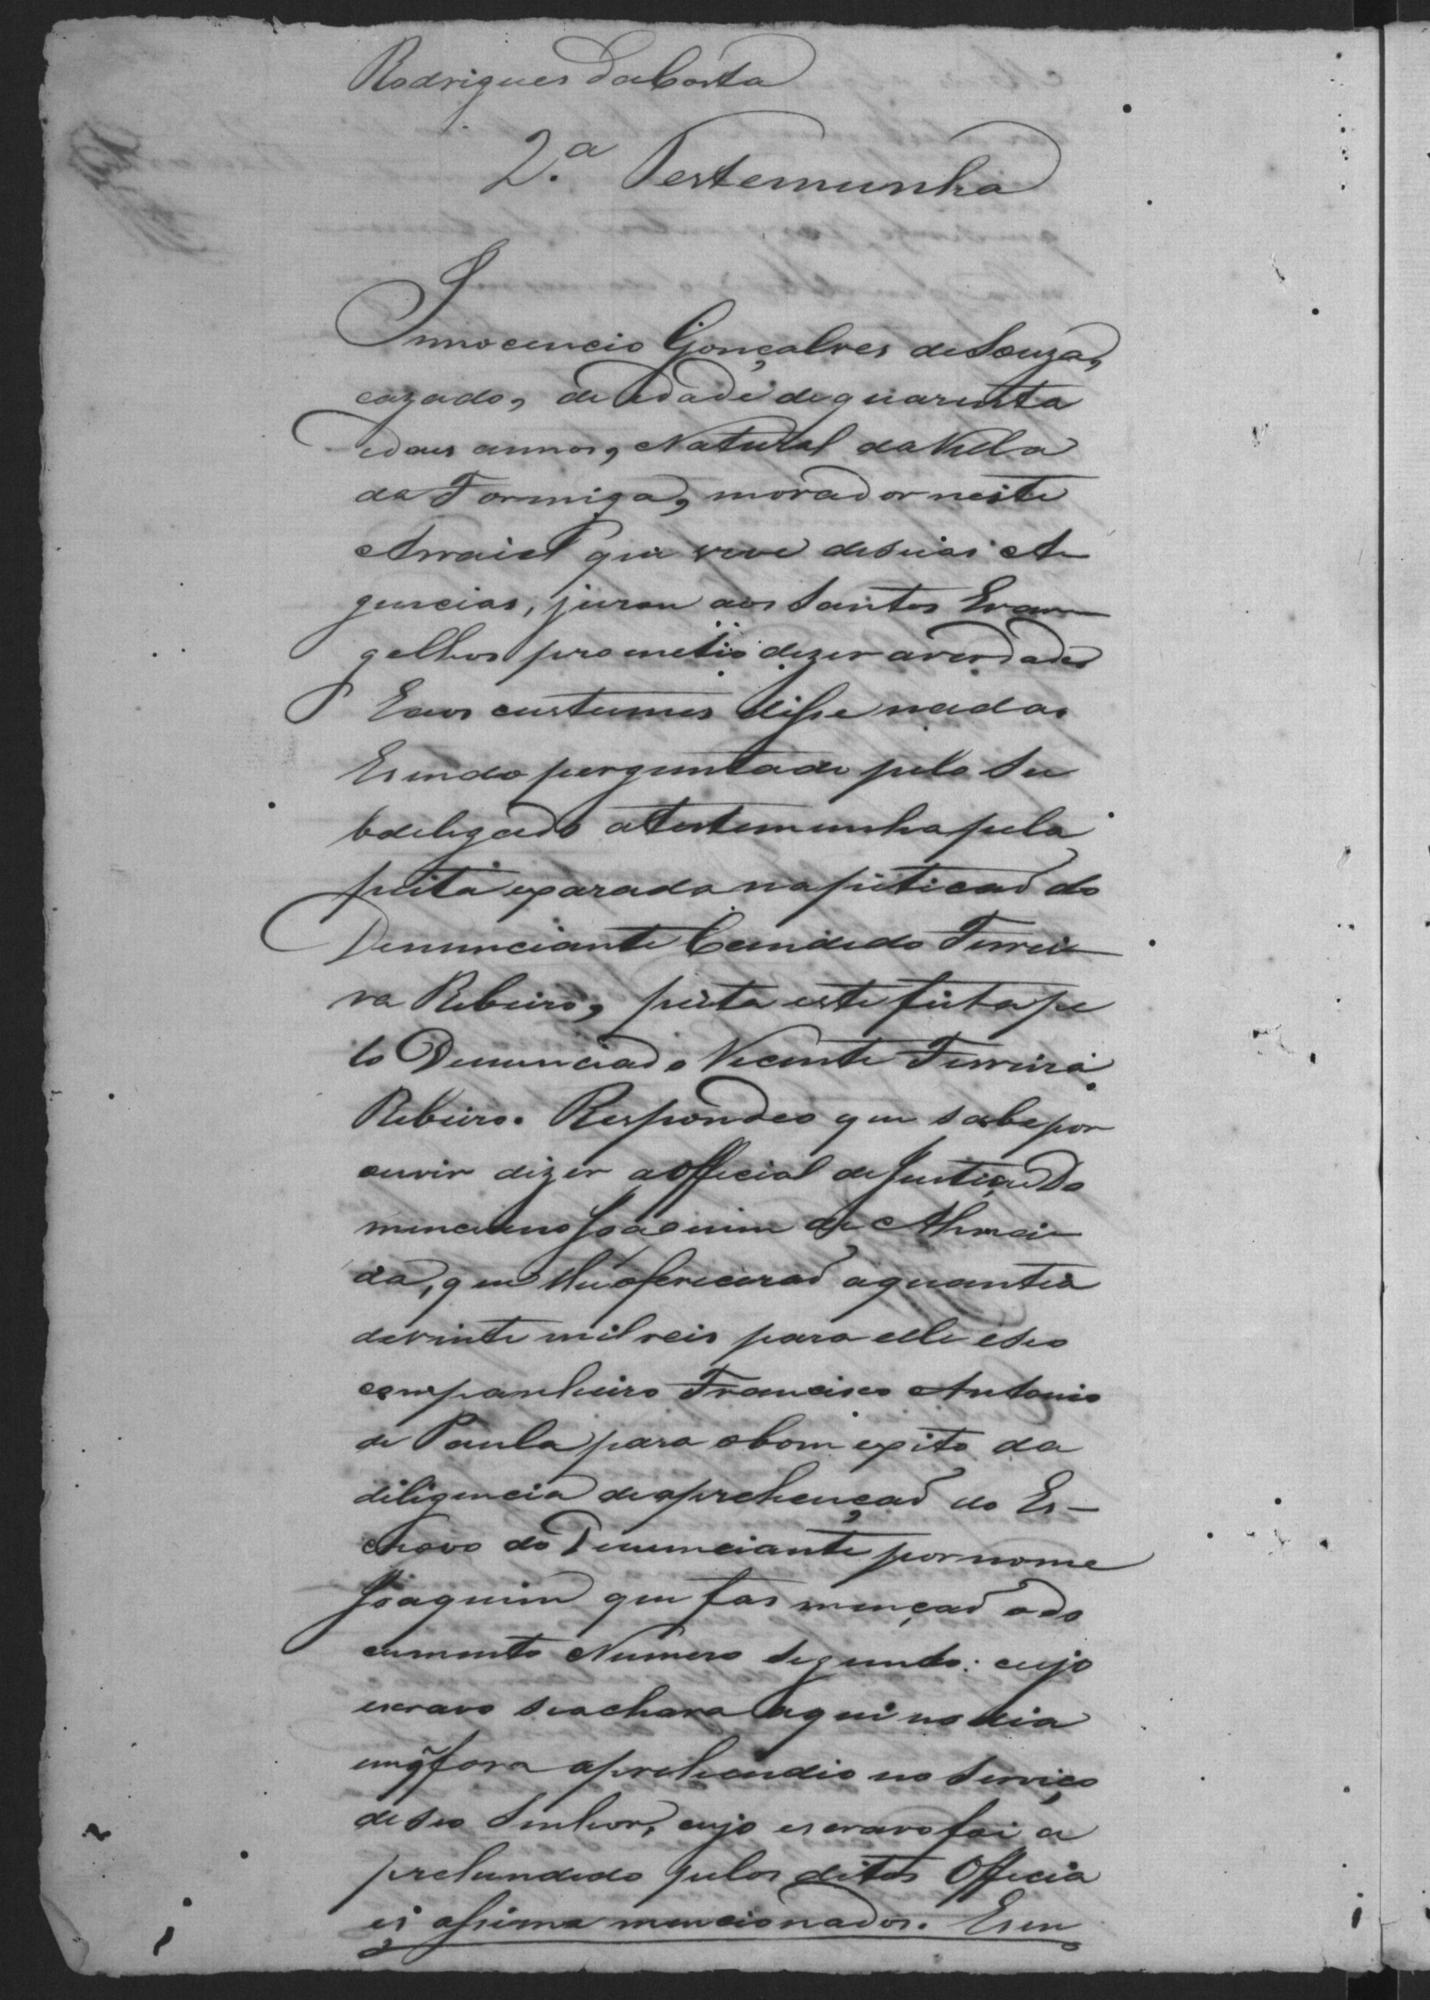 Rodrigues daCosta
2.ª Testemunha
Innocencio Gonçalves deSouza,
cazado, de edade dequarenta
edous annos, Natural daVilla
da Formiga, morador neste
Arraial que vive desuas A
gencias, jurou aos Santos Evan
gelhos prometio dizer averdade
Eaos custumes disse nada.
Esendo perguntado pelo Su
bdelegado aTestemunha pela
peita exarada napeticaõ do
Denunciante Candido Ferrei
ra Ribeiro, peita este feita pe
lo Denunciado Vicente Ferreira
Ribeiro. Respondeo que sabe por
ouvir dizer aOfficial deJustiça Do
minciano Joaquim de Almei
da, que lhe ofereceraõ aquantia
devinte mil reis para elle eseo
companheiro Francisco Antonio
de Paula para obom exito da
diligencia deaprehençaõ do Es-
cravo do Denunciante por nome
Joaquim que fas mençaõ odo
cumento Numero Segundo: cujo
escravo seachava aqui no dia
emq̃ fora aprehendio no Serviço
deseo Senhor, cujo escravo foi a
prehendido pelos ditos Officia
es assima mencionados. Esen